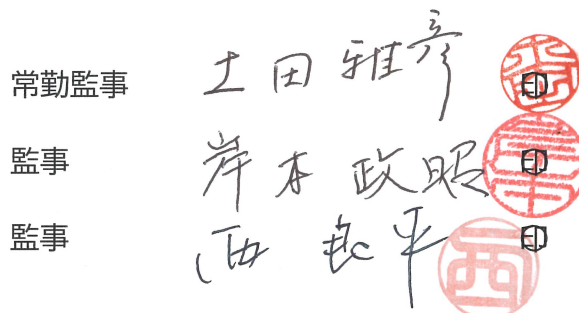 常勤監事 土田雅彦 印
監事 岸本政昭 印
監事 西良平 印
西